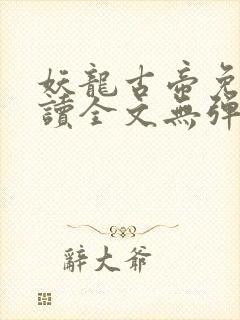 妖龍古帝免
讀全文無彈
辭大爺